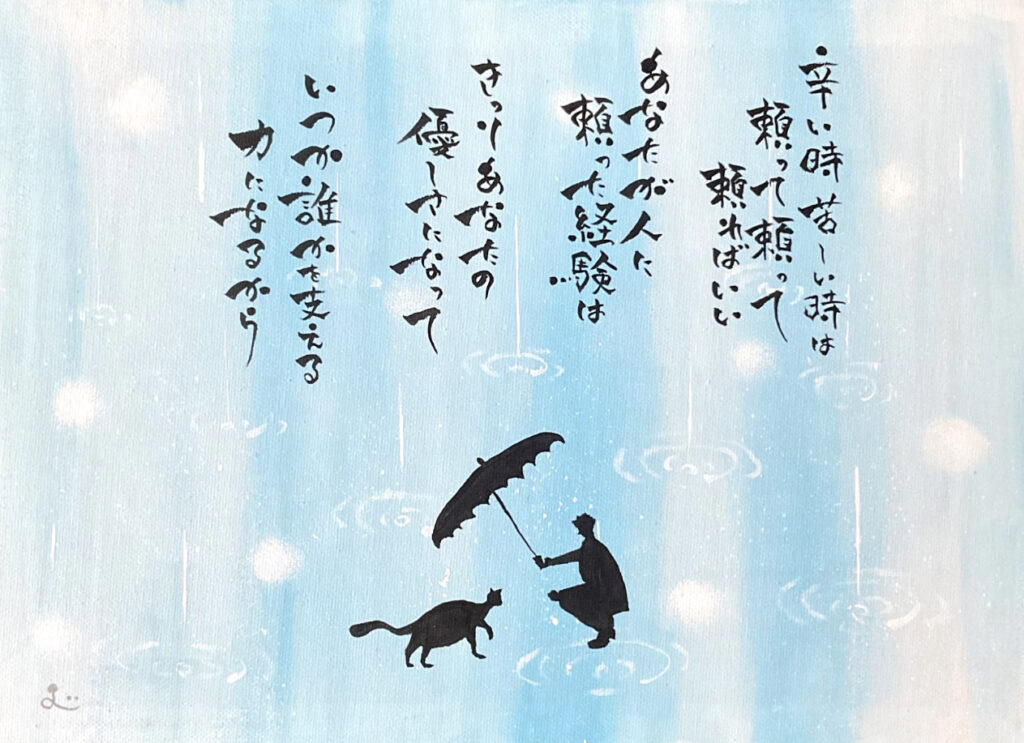 辛い時苦しい時は
頼って頼って
頼ればいい
あなたが人に
頼った経験は
きっとあなたの
優しさになって
いつか誰かを支える
力になるから